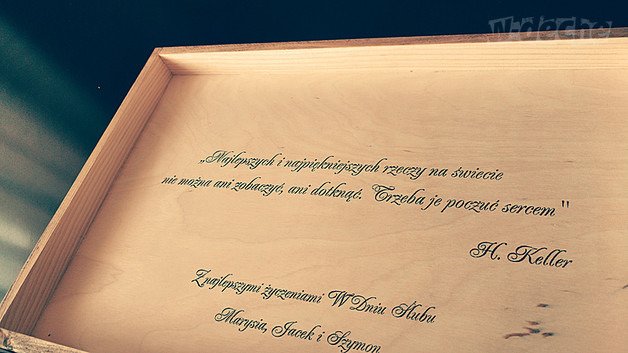 N-deche
„Najlepszych i najpiękniejszych rzeczy na świecie
nie można ani zobaczyć, ani dotknąć. Trzeba je poczuć sercem"
H. Keller
Znajlepszymi życzeniami W Dniu Ślubu
Marysia, Jacek i Szymon